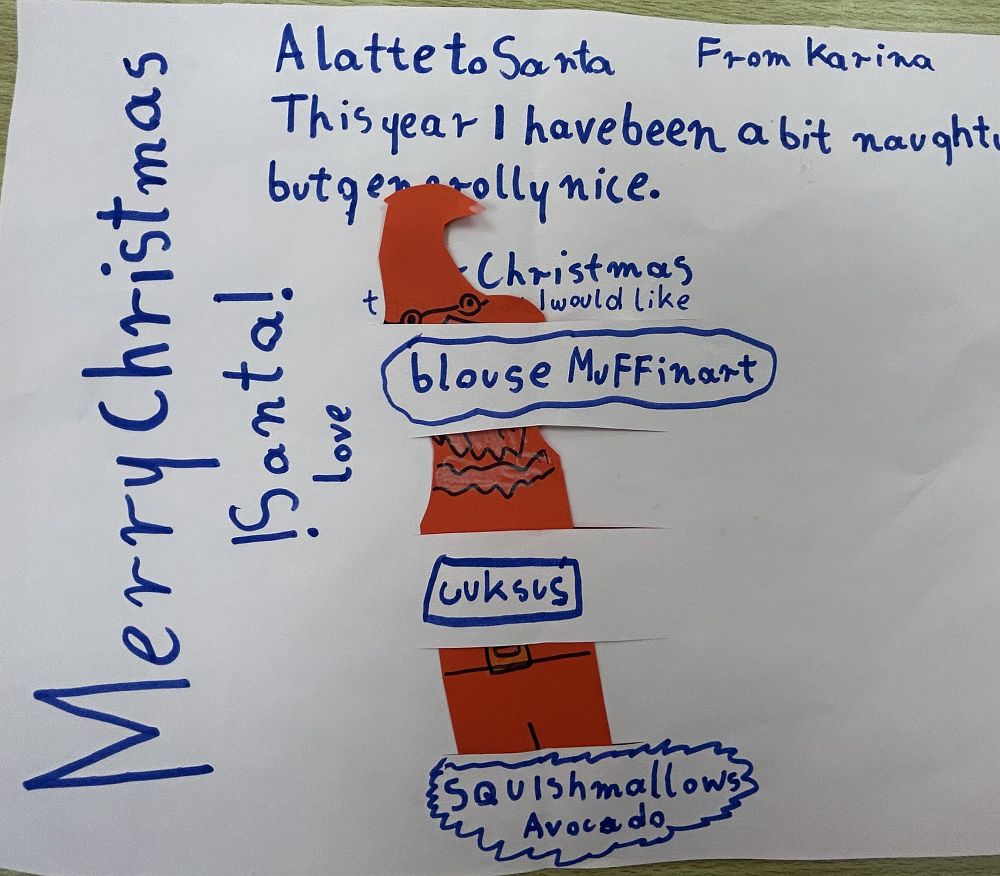 A latte to Santa From Karina
This year I have been a bit naughty
but generolly nice.
Christmas
I would like
blouse MuFFinart
cuksus
SQUIshmallows
Avocado
Merry Christmas
¡Santa!
Love